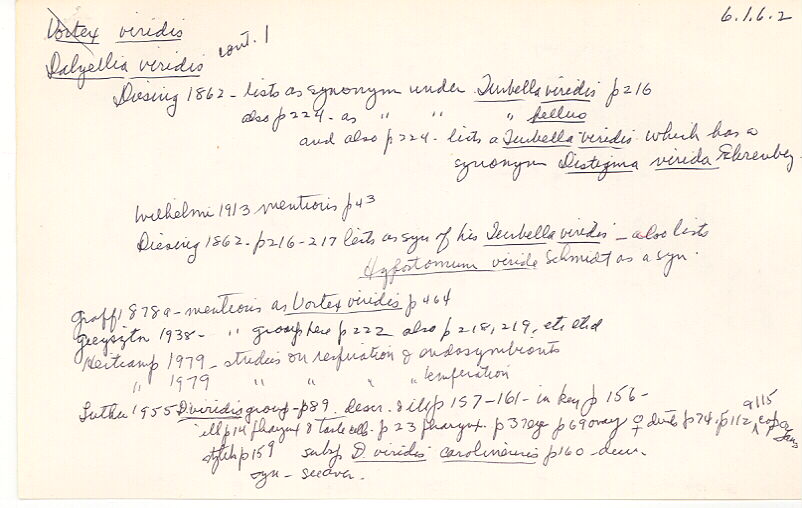 6.1.6.2
Vortex viridis
Dalyellia viridis cont. 1
Diesing 1862 - lists as synonym under Turbella viridis p 216
also p 224 - as " " " bellus
and also p 224 - lists a Turbella viridis which has a
synonym Distigma virida Ehrenberg.
Wilhelmi 1913 mentions p 43
Diesing 1862 - p 216-217 lists as syn of his Turbella viridis - also lists
Hypostomum viride Schmidt as a syn.
Graff 1878a - mentions as Vortex viridis p 464
Gieysztn 1938 - " group here p 222 also p 218, 219, etc etd
Heitkamp 1979 - studies on respiration & endosymbionts
" 1979 " " " " temperation
Luther 1955 D. viridis group - p 89. descr. & ill p 157-161 - in key p 156 -
ill p 14 pharynx & taste cell. p 23 pharynx. p 37 eye p 69 ovary ♀ ducts p 74. p 112, a 115 cop organs
stylet p 159 subsp D. viridis carolinensis p 160 - descr.
syn - see over.